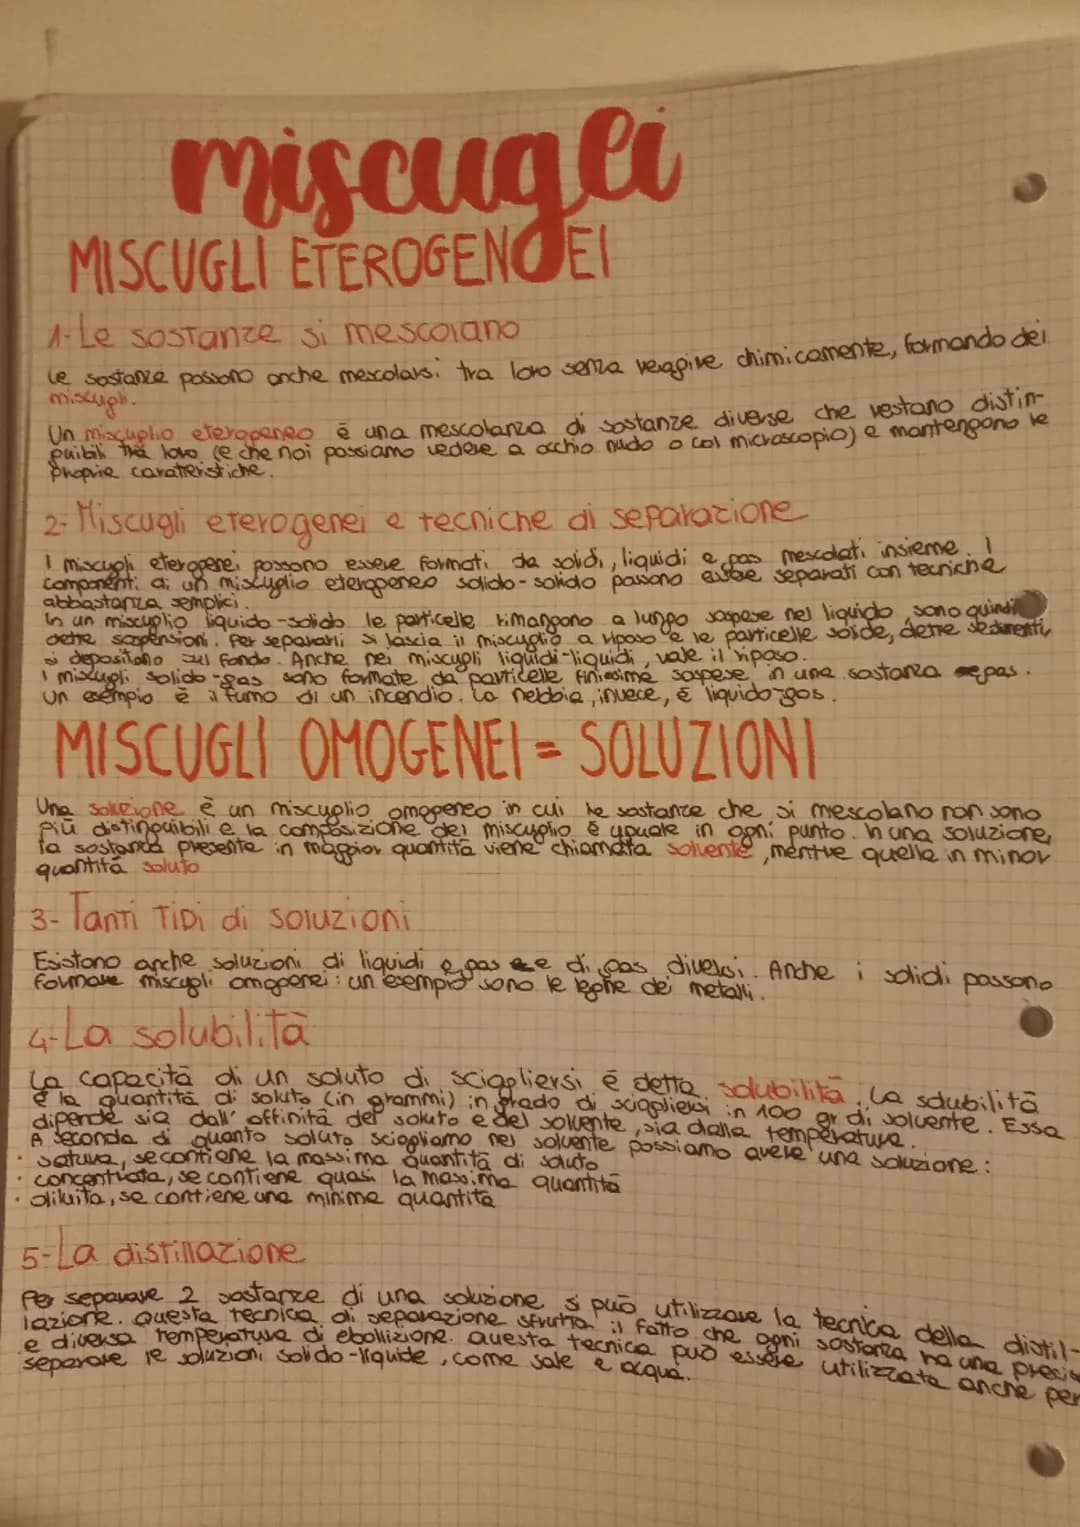 miscugli
MISCUGLI ETEROGENEI
1-Le sostanze si mescolano
Le sostanze possono anche mescolarsi tra loro senza reagire chimicamente, formando dei
miscugli.
Un miscuglio eterogeneo è una mescolanza di sostanze diverse che restano distin-
guibili tra loro (e che noi possiamo vedere a occhio nudo o col microscopio) e mantengono le
proprie caratteristiche.
2- Miscugli eterogenei e tecniche di separazione
I miscugli eterogenei possono essere formati da solidi, liquidi e gas mescolati insieme. I
componenti di un miscuglio eterogeneo solido-solido possono essere separati con tecniche
abbastanza semplici.
In un miscuglio liquido-solido le particelle rimangono a lungo sospese nel liquido, sono quindi
dette sospensioni. Per separarli si lascia il miscuglio a riposo e le particelle solide, dette sedimenti,
si depositano sul fondo. Anche nei miscugli liquidi-liquidi, vale il riposo.
I miscugli solido-gas sono formate da particelle finissime sospese in una sostanza gas.
Un esempio è il fumo di un incendio. La nebbia, invece, è liquido-gas.
MISCUGLI OMOGENEI = SOLUZIONI
Una soluzione è un miscuglio omogeneo in cui le sostanze che si mescolano non sono
più distinguibili e la composizione del miscuglio è uguale in ogni punto. In una soluzione,
la sostanza presente in maggior quantità viene chiamata solvente, mentre quella in minor
quantità soluto
3- Tanti tipi di soluzioni
Esistono anche soluzioni di liquidi e gas e di gas diversi. Anche i solidi possono
formare miscugli omogenei: un esempio sono le leghe dei metalli.
4-La solubilità
La capacità di un soluto di sciogliersi è detta solubilità. La solubilità
è la quantità di soluto (in grammi) in grado di sciogliersi in 100 gr di solvente. Essa
dipende sia dall'affinità del soluto e del solvente, sia dalla temperatura.
A seconda di quanto soluto sciogliamo nel solvente possiamo avere una soluzione:
• satura, se contiene la massima quantità di soluto
• concentrata, se contiene quasi la massima quantità
• diluita, se contiene una minima quantità
5-La distillazione
Per separare 2 sostanze di una soluzione si può utilizzare la tecnica della distil-
lazione. Questa tecnica di separazione sfrutta il fatto che ogni sostanza ha una precisa
e diversa temperatura di ebollizione. Questa tecnica può essere utilizzata anche per
separare le soluzioni solido-liquide, come sale e acqua.